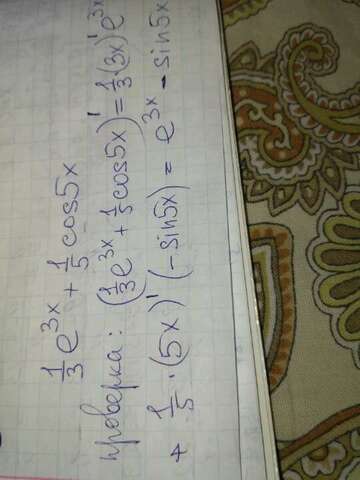 1/3 e^3x + 1/5 cos5x
проверка: (1/3 e^3x + 1/5 cos5x)' = 1/3 · (3x)' e^3x
+ 1/5 · (5x)' (-sin5x) = e^3x - sin5x